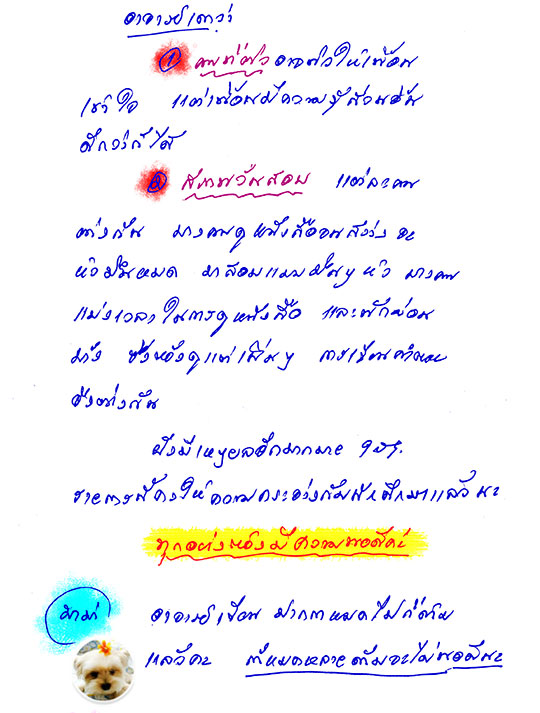 อาจารย์เดาว่า
① คนที่ติว อาจติวให้เพื่อน
เข้าใจ แต่เพื่อนมีความรู้ส่วนอื่น
ดีกว่าก็ได้
② สภาพวันสอบ แต่ละคน
ต่างกัน บางคนดูหนังสือจนสว่าง จะ
หัว มาสอบแบบมึนๆ หัว บางคน
แบ่งเวลาในการดูหนังสือ และพักผ่อน
บ้าง การเขียนคำตอบ
จึงต่างกัน
ยังมีเหตุผลอีกมากมาย ฯลฯ
รายการนี้คงให้ความกระจ่างกับนักศึกษาแล้วนะ
ทุกอย่างต้องมีความพอดีค่ะ
อาจารย์เขียน ปากกาหมดไปกี่ด้าม
แล้วคะ ถ้าหมดหลายด้ามจะไม่พอดีนะ